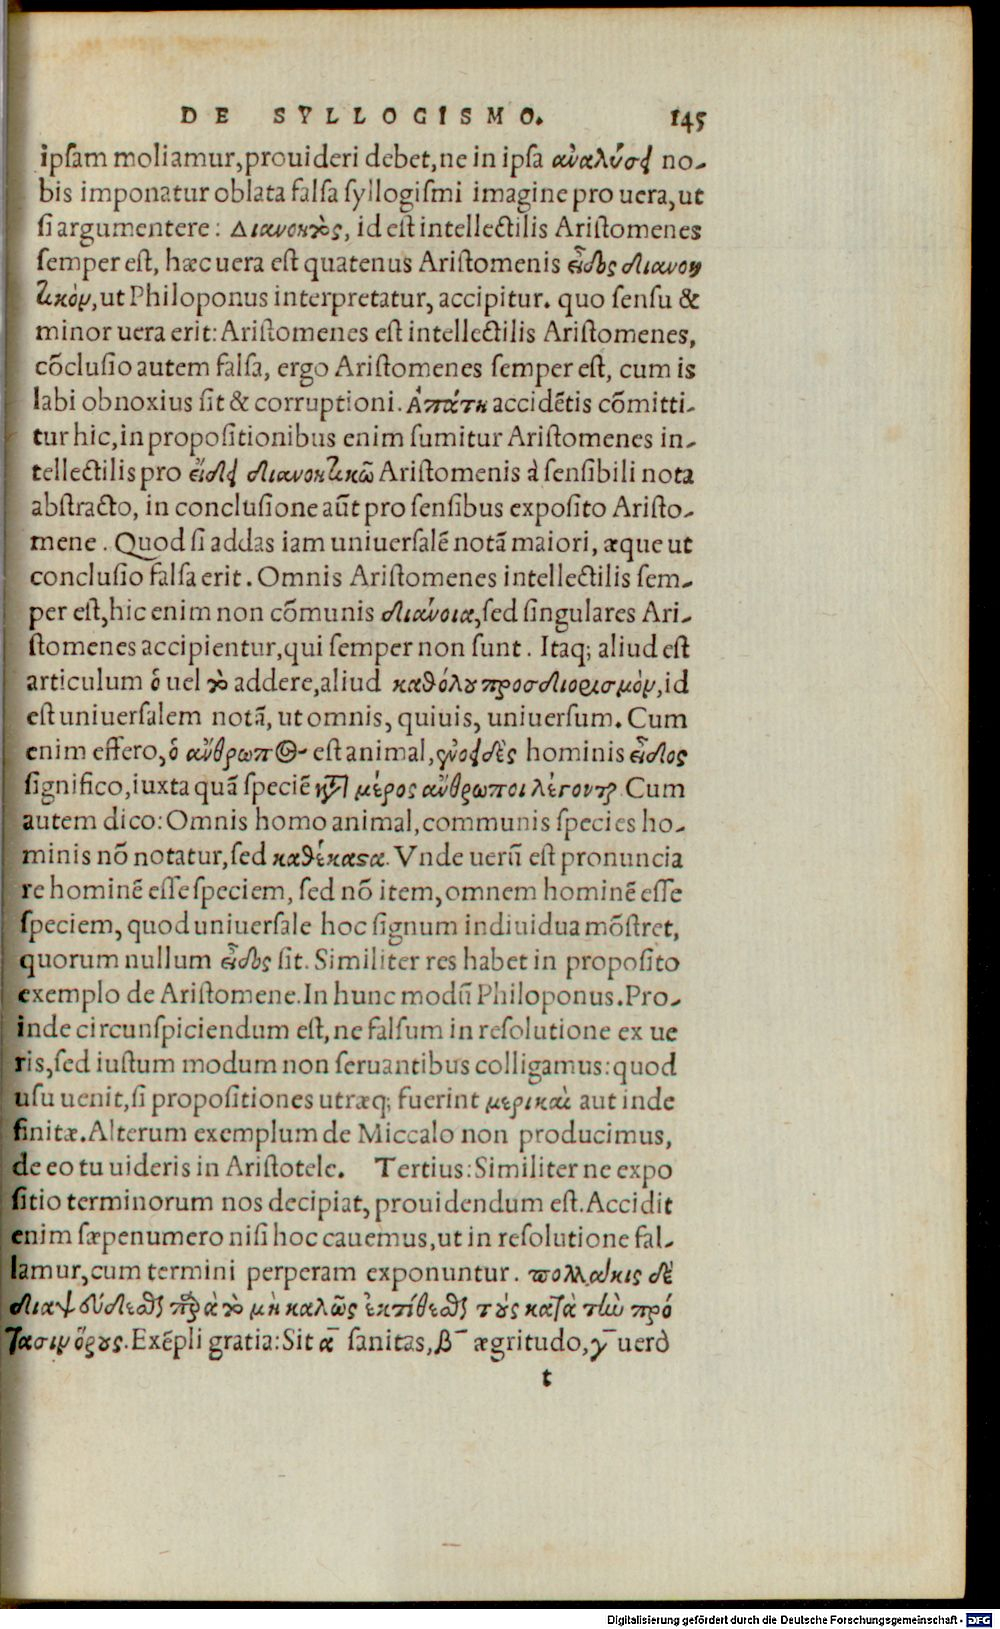 DE SYLLOGISMO. 145
ipsam moliamur, prouideri debet, ne in ipsa ἀναλύσει no-
bis imponatur oblata falsa syllogismi imagine pro uera, ut
si argumentere: Διανοητὸς, id est intellectilis Aristomenes
semper est, hæc uera est quatenus Aristomenis εἶδος διανοη
τικὸν, ut Philoponus interpretatur, accipitur. quo sensu &
minor uera erit: Aristomenes est intellectilis Aristomenes,
cōclusio autem falsa, ergo Aristomenes semper est, cum is
labi obnoxius sit & corruptioni. Ἀπάτη accidētis cōmitti-
tur hic, in propositionibus enim sumitur Aristomenes in-
tellectilis pro εἴδει διανοητικῶ Aristomenis à sensibili nota
abstracto, in conclusione aūt pro sensibus exposito Aristo-
mene. Quod si addas iam uniuersalē notā maiori, æque ut
conclusio falsa erit. Omnis Aristomenes intellectilis sem-
per est, hic enim non cōmunis διάνοια, sed singulares Ari-
stomenes accipientur, qui semper non sunt. Itaq; aliud est
articulum ὁ uel τὸ addere, aliud καθόλου προσδιορισμὸν, id
est uniuersalem notā, ut omnis, quiuis, uniuersum. Cum
enim effero, ὁ ἄνθρωπος est animal, γνοειδὲς hominis εἶδος
significo, iuxta quā speciē κατὰ μέρος ἄνθρωποι λέγονται. Cum
autem dico: Omnis homo animal, communis species ho-
minis nō notatur, sed καθέκαστα. Vnde uerū est pronuncia
re hominē esse speciem, sed nō item, omnem hominē esse
speciem, quod uniuersale hoc signum indiuidua mōstret,
quorum nullum εἶδος sit. Similiter res habet in proposito
exemplo de Aristomene. In hunc modū Philoponus. Pro-
inde circunspiciendum est, ne falsum in resolutione ex ue
ris, sed iustum modum non seruantibus colligamus: quod
usu uenit, si propositiones utræq; fuerint μερικαὶ aut inde
finitæ. Alterum exemplum de Miccalo non producimus,
de eo tu uideris in Aristotele. Tertius: Similiter ne expo
sitio terminorum nos decipiat, prouidendum est. Accidit
enim sæpenumero nisi hoc cauemus, ut in resolutione fal-
lamur, cum termini perperam exponuntur. πολλάκις δὲ
διαψεύδεσθαι παρὰ τὸ μὴ καλῶς ἐκτίθεσθαι τοὺς κατὰ τὴν πρό
τασιν ὅρους. Exēpli gratia: Sit α sanitas, β ægritudo, γ uerò
t
Digitalisierung gefördert durch die Deutsche Forschungsgemeinschaft - DFG